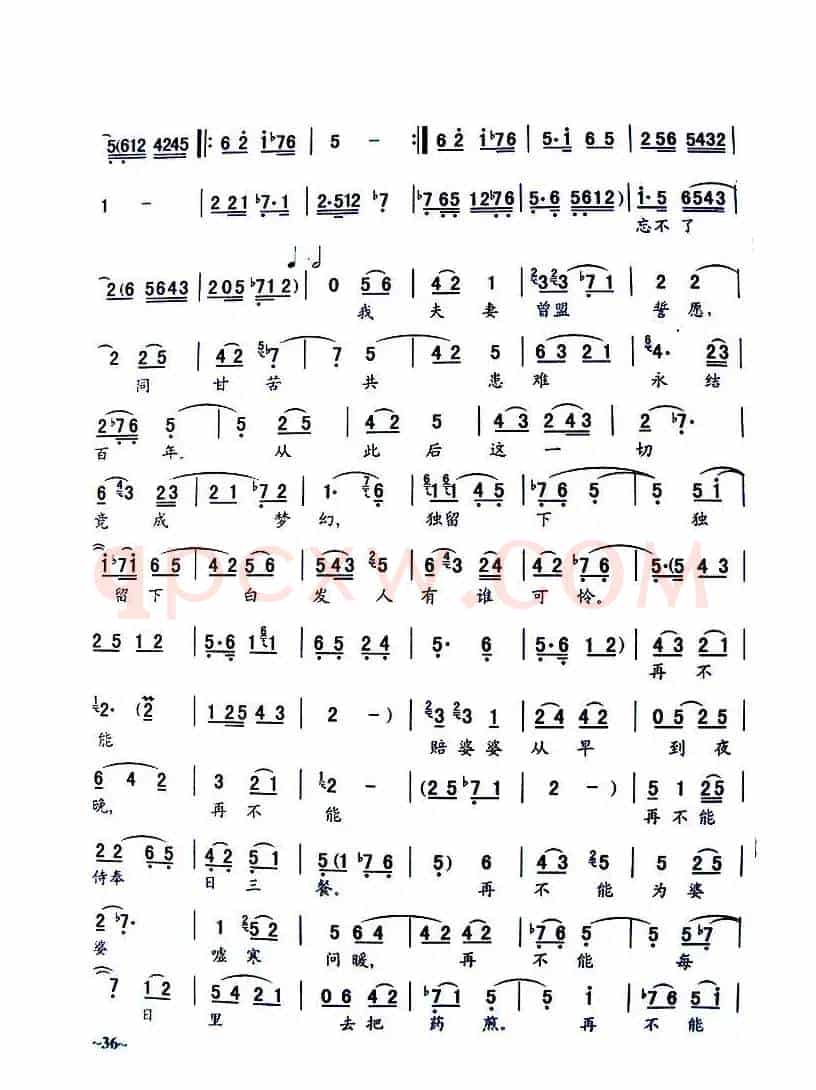 5(612 4245 |: 6 2 i ♭7 6 | 5 - :| 6 2 i ♭7 6 | 5·i 6 5 | 256 5432 |
1 - | 2 21 ♭7·1 | 2·512 ♭7 | ♭7 65 12♭76 | 5·6 5612) | i·5 6543 |
忘不了
2(6 5643 | 205 ♭712) | 0 56 | 42 1 | 3 3 ♭7 1 | 2 2 |
我 夫 妻 曾盟 誓愿,
2 25 | 42 ♭7 | 7 5 | 42 5 | 63 21 | 4· 23 |
同 甘 苦 共 患 难 永 结
2♭76 5 | 5 25 | 42 5 | 43 243 | 2 ♭7· |
百 年. 从 此 后 这 一 切
6 3 23 | 21 ♭72 | 1· 6 | 1 1 45 | ♭76 5 | 5 5i |
竟 成 梦 幻, 独留 下 独
i♭7i 65 | 42 56 | 543 5 | 6 3 24 | 42 ♭76 | 5·(5 43 |
留 下 白 发 人 有 谁 可 怜。
qpcxw.COM
25 12 | 5·6 1 1 | 65 24 | 5· 6 | 5·6 12) | 43 21 |
再 不
2· (2 | 125 43 | 2 -) | 3 3 1 | 24 42 | 05 25 |
能 赔 婆婆 从 早 到 夜
6 42 | 3 21 | 2 - | (25 ♭71 | 2 -) | 5 1 25 |
晚, 再 不 能 再 不 能
22 65 | 42 51 | 5(1 ♭76 | 5) 6 | 43 5 | 5 25 |
侍奉 日 三 餐. 再 不 能 为 婆
2 ♭7· | 1 52 | 5 64 | 42 42 | ♭76 5 | 5♭7 |
婆 嘘 寒 问 暖, 再 不 能 每
7 12 | 54 21 | 06 42 | ♭71 5 | 5 i | ♭76 5i |
日 里 去 把 药 煎。 再 不 能
~36~